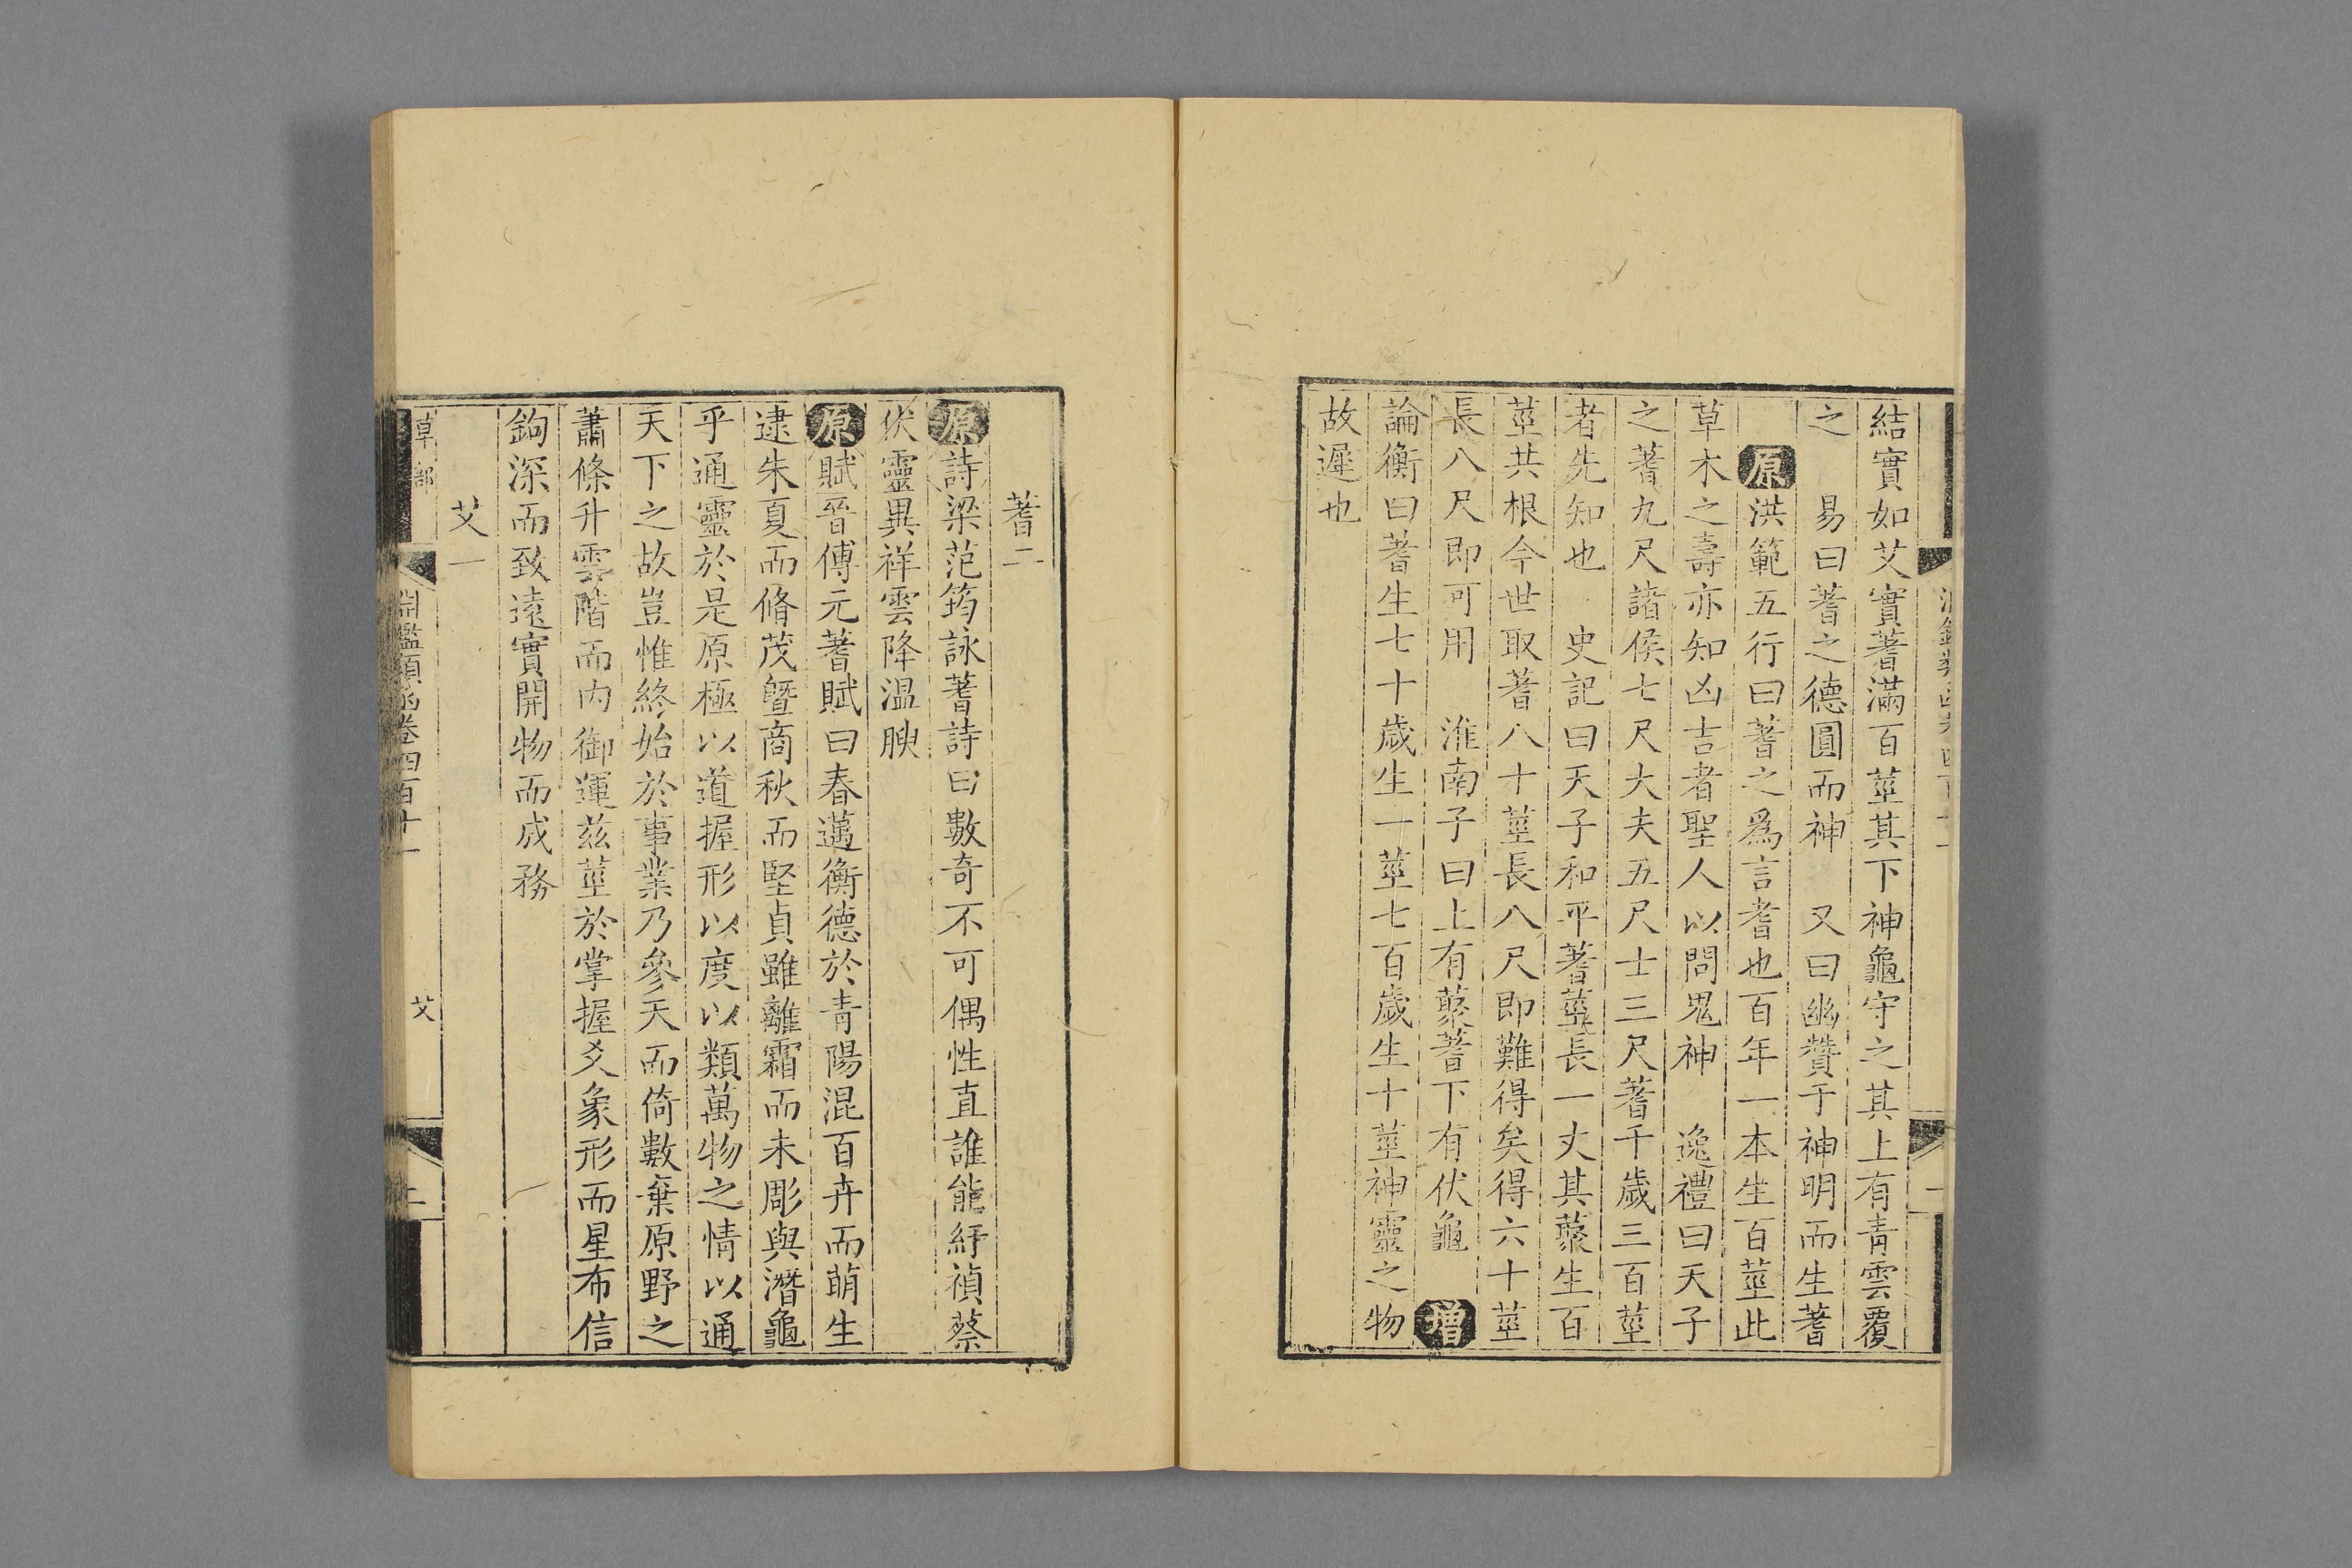 結實如艾實蓍滿百莖其下神龜守之其上有青雲覆
之　易曰蓍之德圓而神　又曰幽贊于神明而生蓍
原洪範五行曰蓍之爲言耆也百年一本生百莖此
草木之壽亦知凶吉者聖人以問鬼神　逸禮曰天子
之蓍九尺諸侯七尺大夫五尺士三尺蓍千歲三百莖
者先知也　史記曰天子和平蓍莖長一丈其藂生百
莖共根今世取蓍八十莖長八尺即難得矣得六十莖
長八尺即可用　淮南子曰上有藂蓍下有伏龜　增
論衡曰蓍生七十歲生一莖七百歲生十莖神靈之物
故遲也
蓍二
原詩梁范筠詠蓍詩曰數奇不可偶性直誰能紆禎蔡
伏靈異祥雲降温腴
原賦晉傅元蓍賦曰春邁衡德於青陽混百卉而萌生
逮朱夏而脩茂曁商秋而堅貞雖離霜而未彫與潛龜
乎通靈於是原極以道握形以度以類萬物之情以通
天下之故豈惟終始於事業乃參天而倚數棄原野之
蕭條升雲階而内御運茲莖於掌握爻象形而星布信
鉤深而致遠實開物而成務
艾一
草部　淵鑑類函卷四百十一　艾　二